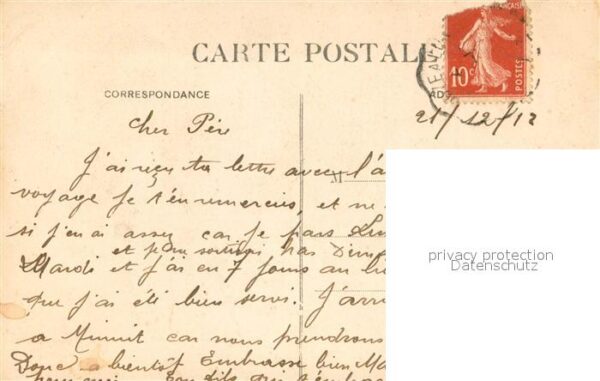 CARTE POSTALE
FRANÇAISE
10c
POSTES
CORRESPONDANCE
AD
21/12/12
Cher Père
J'ai reçu ta lettre avec l'a
M
voyage je t'en remercie, et ne
si j'en ai assez car je pars Lun
et je ne sortirai pas Dim
Mardi et j'ai eu 7 jours au li
que j'ai été bien servi. J'arri
a Minuit car nous prendrons
Donc a bientôt Embrasse bien Ma
privacy protection
Datenschutz